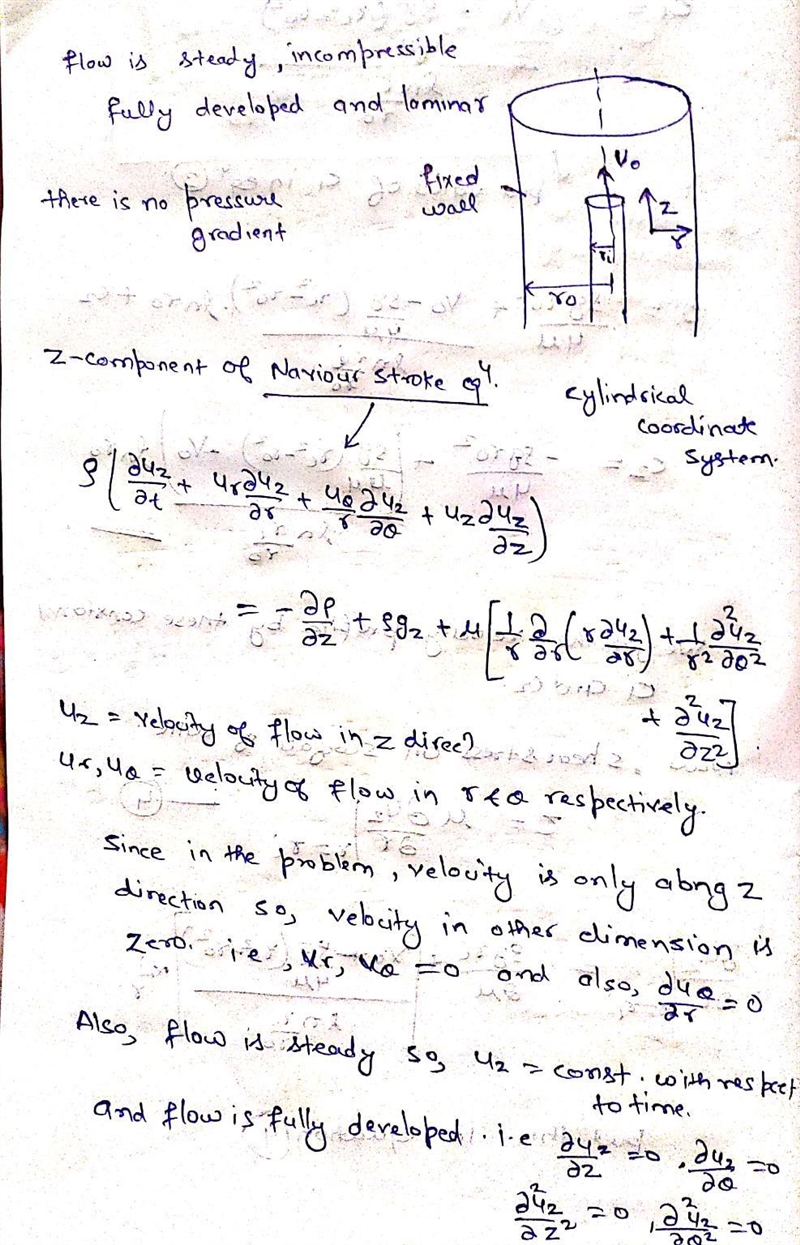 flow is steady, incompressible
fully developed and laminar
there is no pressure
gradient
fixed
wall
V₀
z
r
ri
r₀
Z-component of Naviour stroke eqⁿ.
cylindrical
coordinate
system.
ρ(∂uz/∂t + ur ∂uz/∂r + uθ/r ∂uz/∂θ + uz ∂uz/∂z)
= -∂P/∂z + ρgz + μ[1/r ∂/∂r (r ∂uz/∂r) + 1/r² ∂²uz/∂θ²
+ ∂²uz/∂z²].
uz = velocity of flow in z direcⁿ
ur, uθ = velocity of flow in r & θ respectively.
Since in the problem, velocity is only along z
direction so, velocity in other dimension is
zero. i.e, ur, uθ = 0 and also, ∂uθ/∂r = 0
Also, flow is steady so, uz = const. with respect
to time.
and flow is fully developed. i.e ∂uz/∂z = 0, ∂uz/∂θ = 0
∂²uz/∂z² = 0, ∂²uz/∂θ² = 0